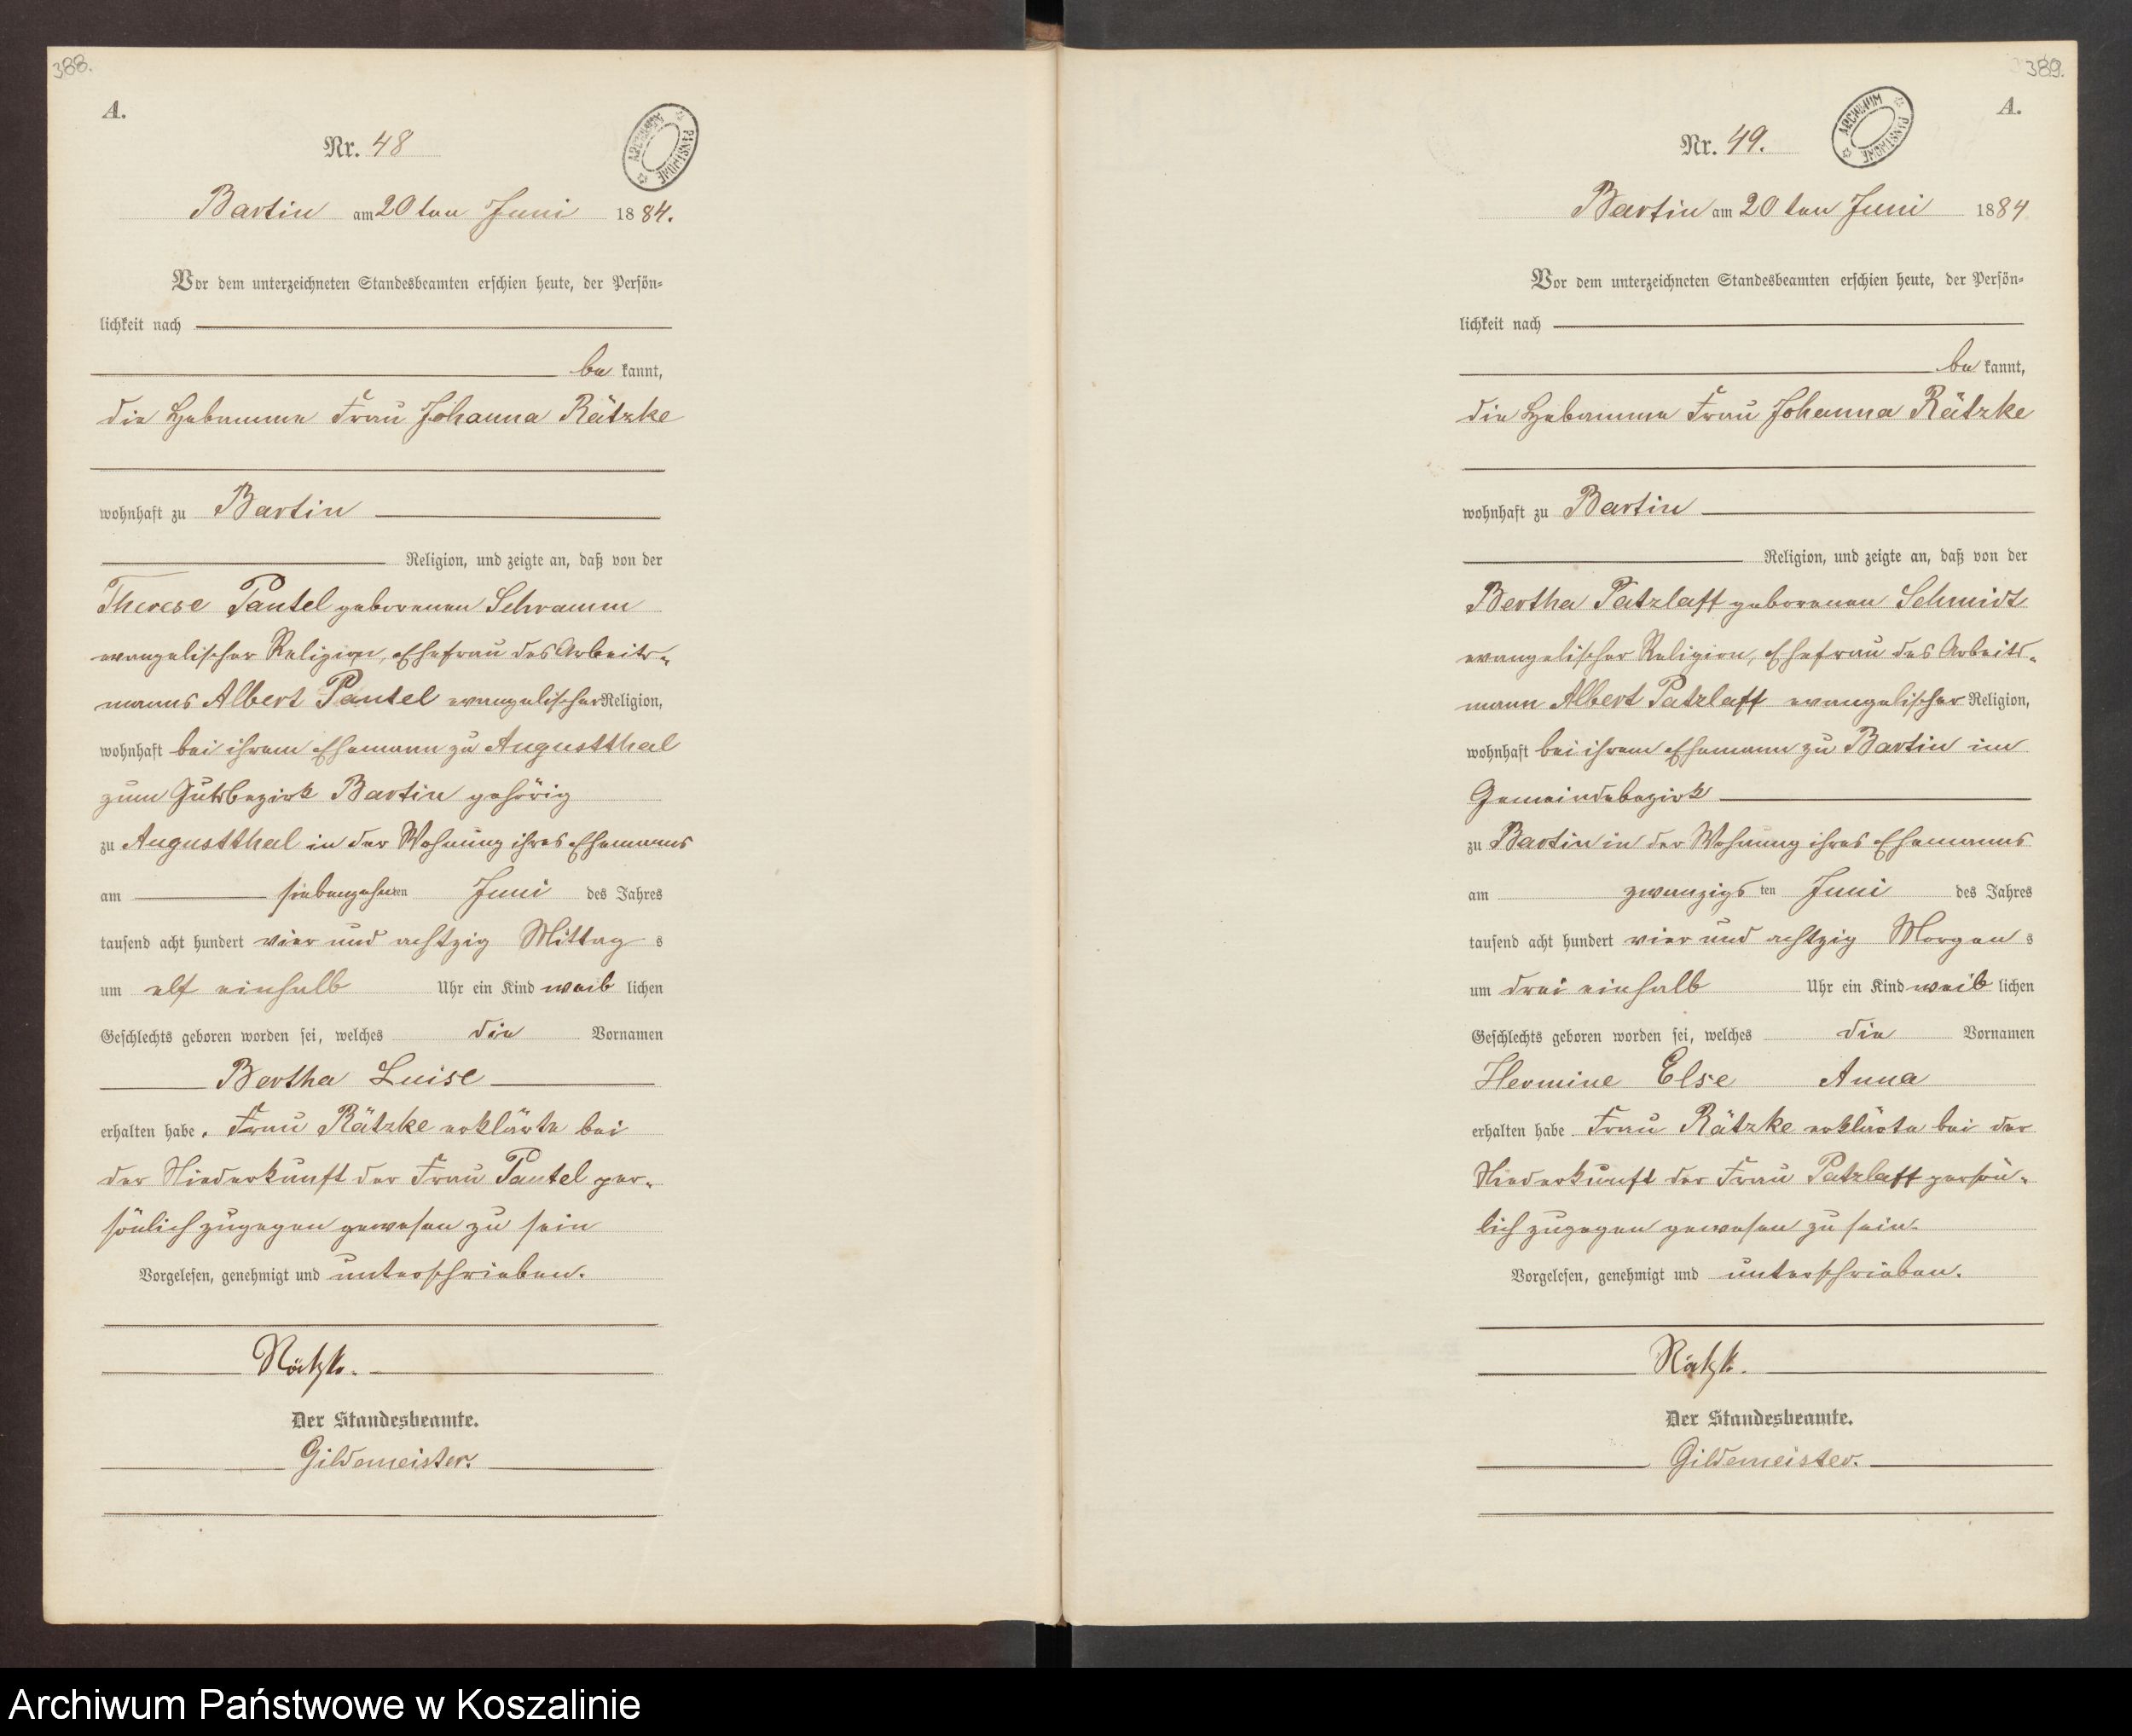 388.
A.
Nr. 48
ARCHIWUM PAŃSTWOWE
Bartin am 20 ten Juni 1884.
Vor dem unterzeichneten Standesbeamten erschien heute, der Persön-
lichkeit nach
be kannt,
die Hebamme Frau Johanna Rätzke
wohnhaft zu Bartin
Religion, und zeigte an, daß von der
Therese Pantel geborenen Schramm
evangelischer Religion, Ehefrau des Arbeits-
manns Albert Pantel evangelischer Religion,
wohnhaft bei ihrem Ehemann zu Augustthal
zum Gutsbezirk Bartin gehörig
zu Augustthal in der Wohnung ihres Ehemanns
am siebenzehnten Juni des Jahres
tausend acht hundert vier und achtzig Mittag s
um elf einhalb Uhr ein Kind weib lichen
Geschlechts geboren worden sei, welches die Vornamen
Bertha Luise
erhalten habe. Frau Rätzke erklärte bei
der Niederkunft der Frau Pantel per-
sönlich zugegen gewesen zu sein
Vorgelesen, genehmigt und unterschrieben.
Rätzke.
Der Standesbeamte.
Gildemeister.
389.
A.
Nr. 49.
ARCHIWUM PAŃSTWOWE
Bartin am 20 ten Juni 1884
Vor dem unterzeichneten Standesbeamten erschien heute, der Persön-
lichkeit nach
be kannt,
die Hebamme Frau Johanna Rätzke
wohnhaft zu Bartin
Religion, und zeigte an, daß von der
Bertha Patzlaff geborenen Schmidt
evangelischer Religion, Ehefrau des Arbeits-
mann Albert Patzlaff evangelischer Religion,
wohnhaft bei ihrem Ehemann zu Bartin im
Gemeindebezirk
zu Bartin in der Wohnung ihres Ehemanns
am zwanzigs ten Juni des Jahres
tausend acht hundert vier und achtzig Morgen s
um drei einhalb Uhr ein Kind weib lichen
Geschlechts geboren worden sei, welches die Vornamen
Hermine Else Anna
erhalten habe Frau Rätzke erklärte bei der
Niederkunft der Frau Patzlaff persön-
lich zugegen gewesen zu sein.
Vorgelesen, genehmigt und unterschrieben.
Rätzk.
Der Standesbeamte.
Gildemeister.
Archiwum Państwowe w Koszalinie